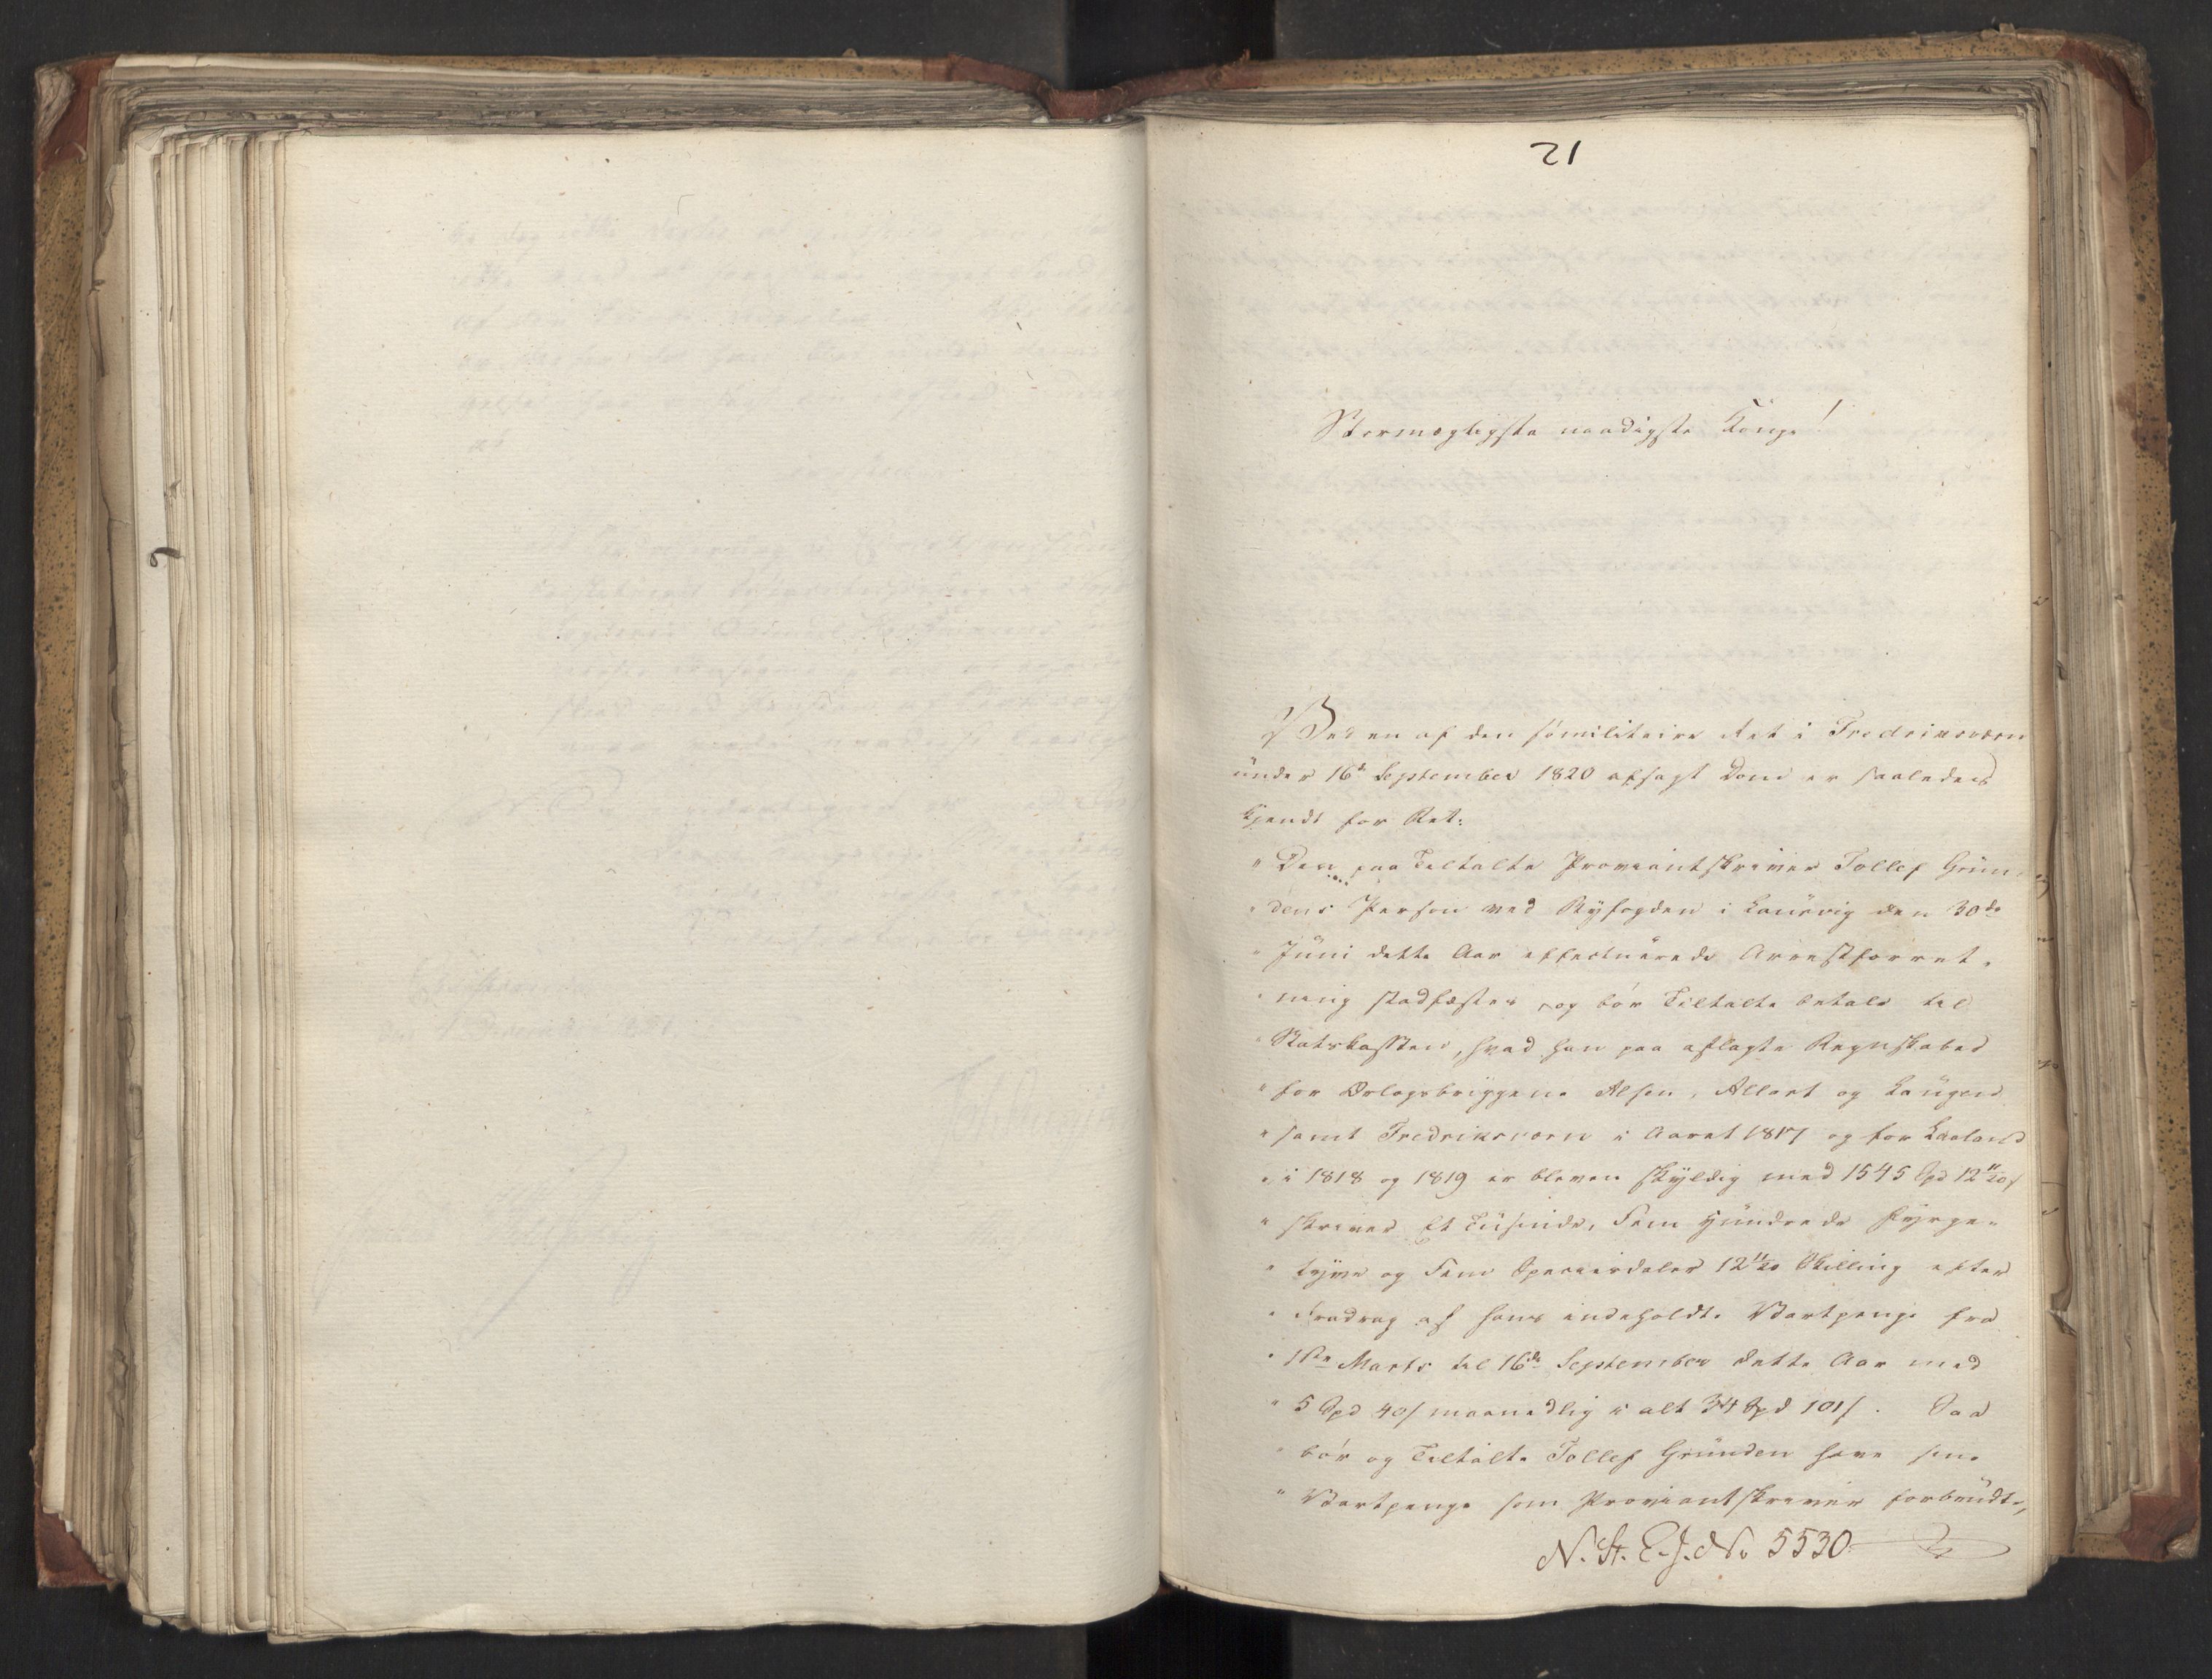 21
Stormægtigste naadigste Konge!
Ved en af den sömilitaire Ret i Fredriksværn
under 16de September 1820 afsagt Dom er saaledes
kjendt for Ret:
"Den paa Tiltalte Proviantskriver Tollef Grün-
"dens Person ved Byfogden i Laurvig den 30de
"Juni dette Aar effectuerede Arrestforret-
"ning stadfæstes, og bör Tiltalte betale til
"Statskassen, hvad han paa aflagte Regnskaber
"for Orlogsbriggene Alsen, Allart og Laugen
"samt Fredriksværn i Aaret 1817 og for Laaland
"i 1818 og 1819 er bleven skyldig med 1545 Spd 12 11/20 s
"skriver Et Tusinde, Fem Hundrede Fyrge-
"tyve og Fem Speciesdaler 12 11/20 Skilling efter
"Fradrag af hans indeholdte Vartpenge fra
"1ste Marts til 16de September dette Aar med
"5 Spd 40 s maanedlig i alt 34 Spd 101 s. Saa
"bör og Tiltalte Tollef Gründen have sine
"Vartpenge som Proviantskriver forbrudt,
N. St. E. J. No 5530